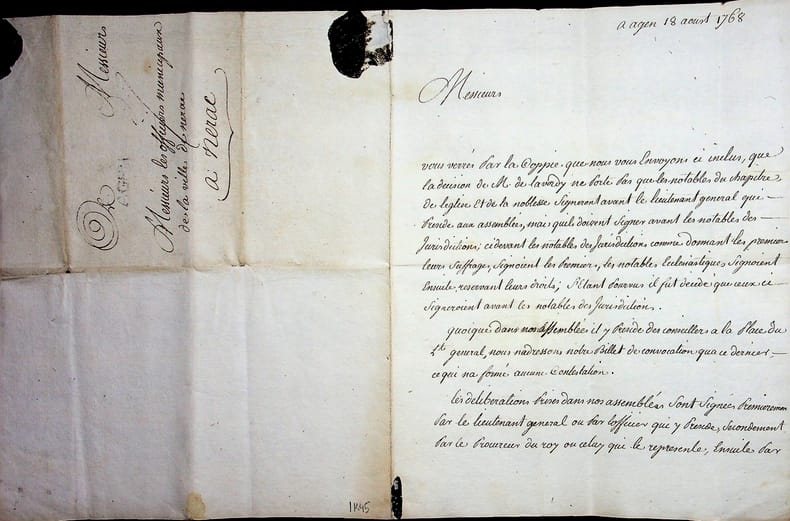 Messieurs
Messieurs les officiers municipaux
de la ville de nerac
a nerac
AGEN
1K45
a agen 18 aoust 1768
Messieurs
vous verrés par la Coppie que nous vous Envoyons ci inclus, que
la decision de M. de laverdy ne porte pas que les notables du chapitre,
de leglise Et de la noblesse Signeront avant le lieutenant general qui
Preside aux assemblées, mais quils doivent Signer avant les notables des
Jurisdictions; ci devant les notables des Jurisdictions comme donnant les premiers
leurs Suffrages, Signoient les Premiers, les notables Ecclesiastiques Signoient
Ensuite, reservant leurs droits; S'Etant pourvus il fut decidé que ceux ci
Signeroient avant les notables des Jurisdictions.
quoique dans nos assemblée il y Preside des conseillers a la Place du
Lt general, nous nadressons notre Billet de convocation qua ce dernier
ce qui na formé aucune Contestation.
les deliberations Prises dans nos assemblées Sont Signées Premieremen
Par le lieutenant general ou Par lofficier qui y Preside, Secondement
Par le Procureur du roy ou celuy qui le represente, Ensuite Par